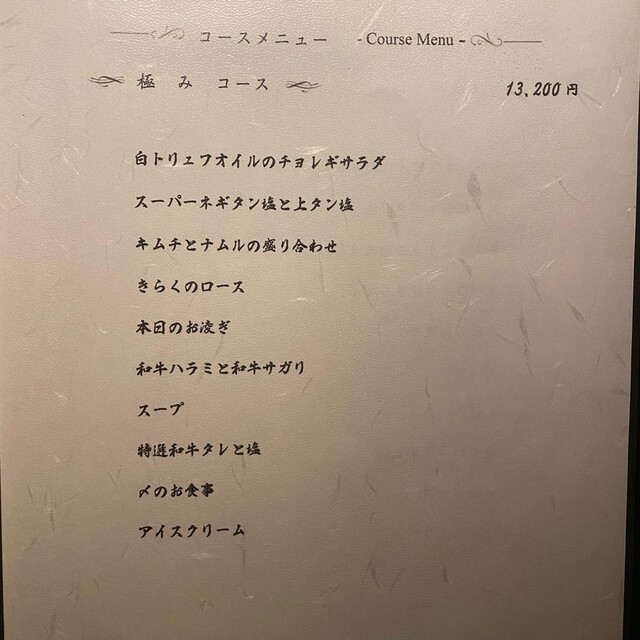 コースメニュー - Course Menu -
極み コース
13,200円
白トリュフオイルのチョレギサラダ
スーパーネギタン塩と上タン塩
キムチとナムルの盛り合わせ
きらくのロース
本日のお凌ぎ
和牛ハラミと和牛サガリ
スープ
特選和牛タレと塩
〆のお食事
アイスクリーム